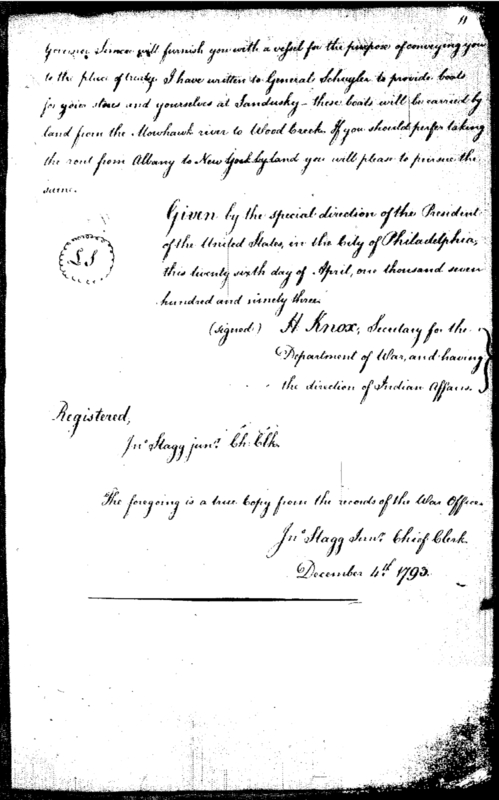 11
Governor Simcoe will furnish you with a vessel for the purpose of conveying you
to the place of treaty. I have written to General Schuyler to provide boats
for your stores and yourselves at Sandusky - these boats will be carried by
land from the Mowhawk river to Wood Creek. If you should perfer taking
the rout from Albany to New York by land you will please to pursue the
same.
Given by the special direction of the President
of the United States, in the City of Philadelphia,
this twenty sixth day of April, one thousand seven
hundred and ninety three.
LS
(signed) H Knox, Secretary for the
Department of War, and having
the direction of Indian Affairs.
Registered,
Jno Stagg junr. Ch. Clk.
The foregoing is a true Copy from the records of the War Office.
Jno Stagg Junr. Chief Clerk.
December 4th. 1793.